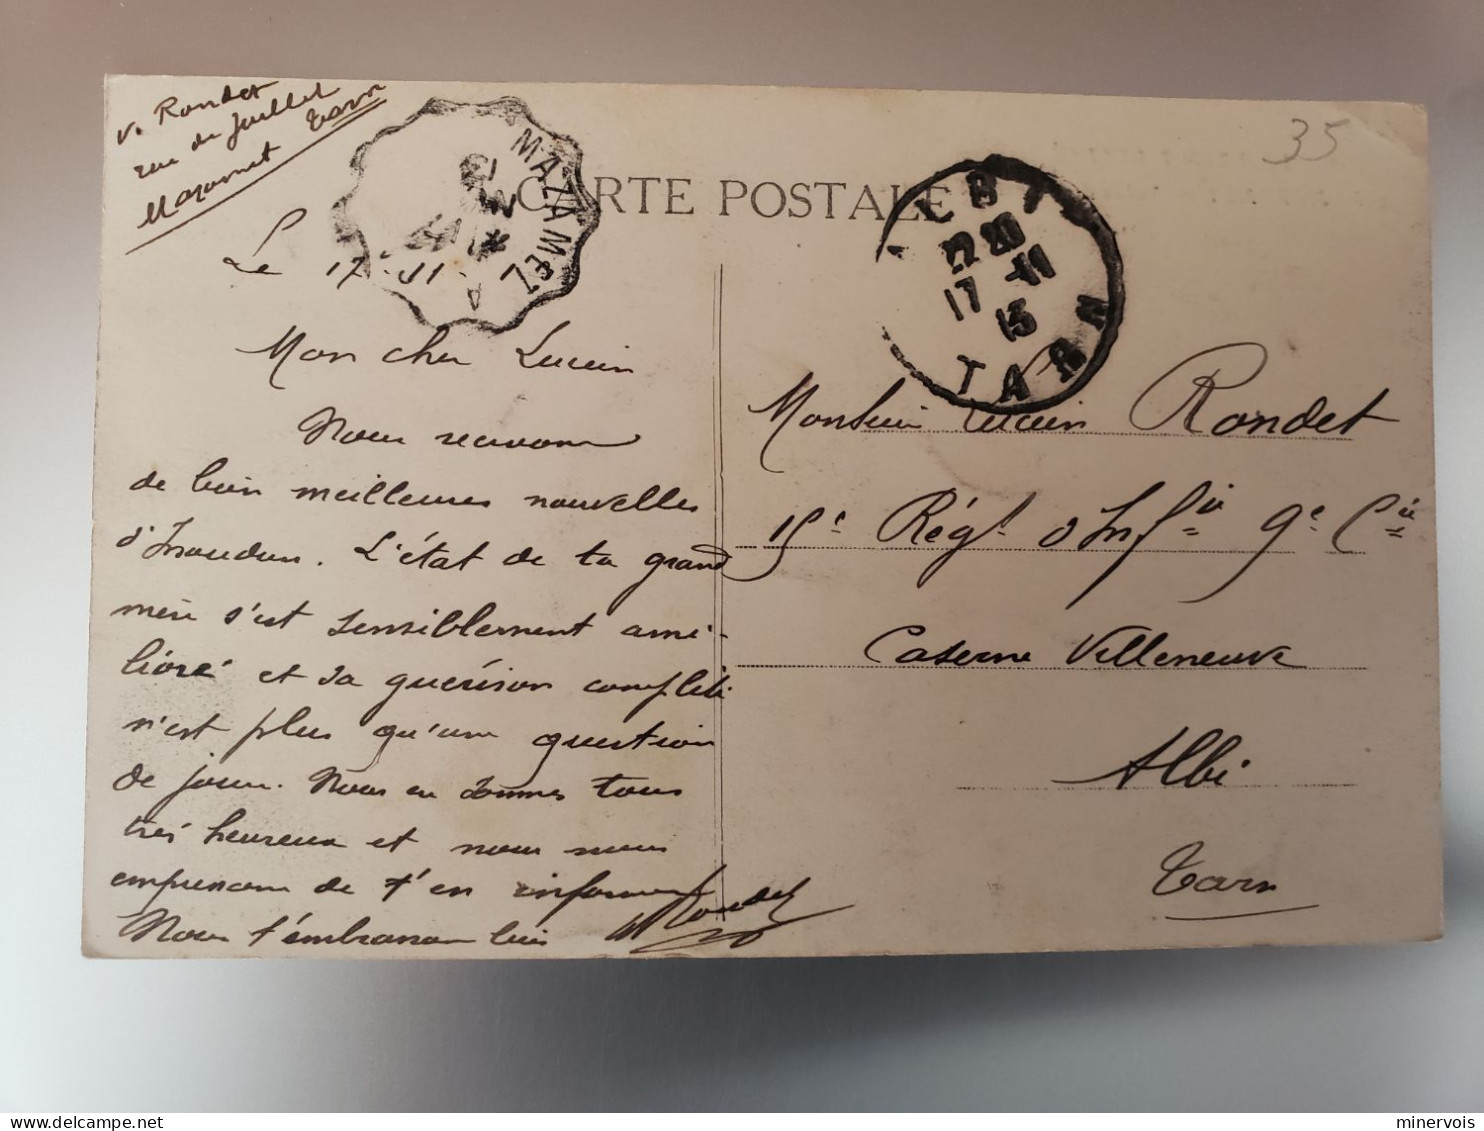 V. Rondet
rue de Juillet
Mazamet Tarn
MAZAMET
CARTE POSTALE
ALBI
22 20
17 -11
13
TARN
35
Le 17-11-
Mon cher Lucien
Nous recevons
de bien meilleures nouvelles
d'Issoudun. L'état de ta grand
mère s'est sensiblement amé-
lioré et sa guérison complète
n'est plus qu'une question
de jours. Nous en sommes tous
très heureux et nous nous
empressons de t'en informer
Nous t'embrassons bien
V Rondet
Monsieur Lucien Rondet
15e Régt d'Infie 9e Cie
Caserne Villeneuve
Albi
Tarn
minervois